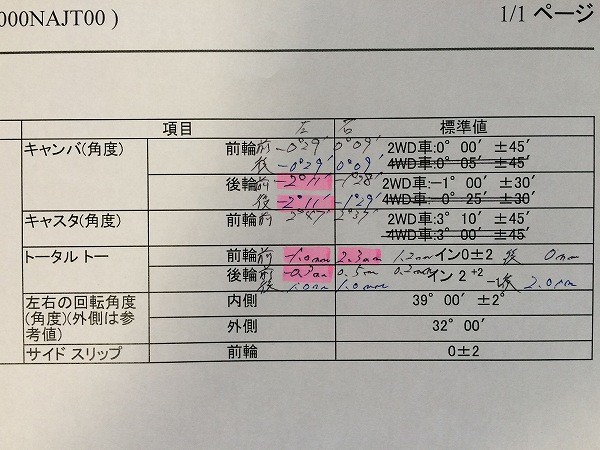 000NAJT00 ) 1/1 ページ
項目 左 右 標準値
キャンバ(角度) 前輪 前 -0°29′ 0°09′ 2WD車:0° 00′ ±45′
後 -0°29′ 0°09′ 4WD車:0° 05′ ±45′
後輪 前 -2°11′ -1°28′ 2WD車:-1° 00′ ±30′
後 -2°11′ -1°29′ 4WD車:-0° 25′ ±30′
キャスタ(角度) 前輪 前 2WD車:3° 10′ ±45′
4WD車:3° 00′ ±45′
トータル トー 前輪 前 -1.0mm 2.3mm 1.2mm イン0±2 後 0mm
後輪 前 -0.3mm 0.5m 0.2mm イン 2 +2
後 1.0mm 1.0mm -1 後 2.0mm
左右の回転角度 内側 39° 00′ ±2°
(角度)(外側は参
考値) 外側 32° 00′
サイド スリップ 前輪 0±2